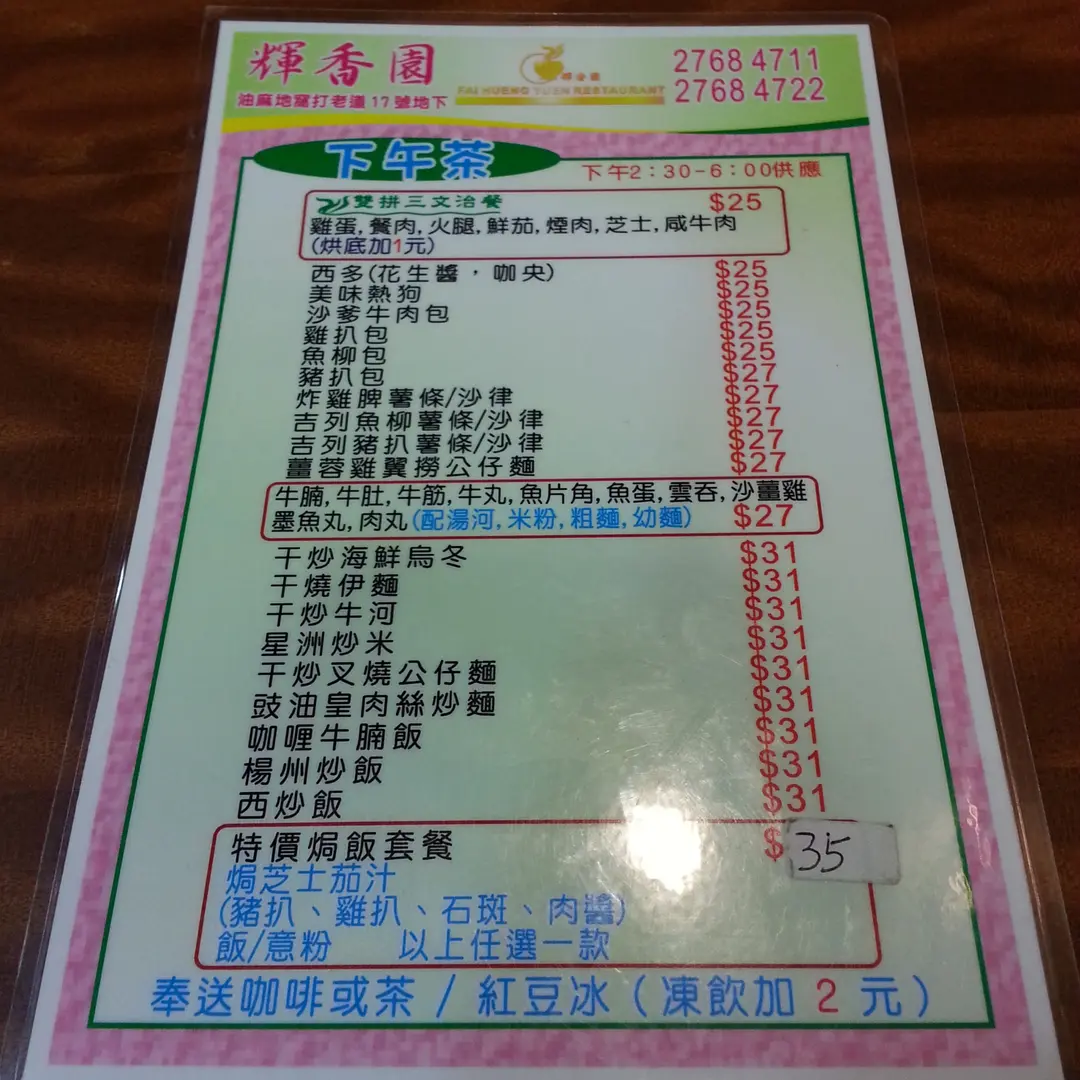 輝香園
輝香園
FAI HUENG YUEN RESTAURANT
2768 4711
2768 4722
油麻地窩打老道17號地下
下午茶
下午2:30-6:00供應
雙拼三文治餐 $25
雞蛋,餐肉,火腿,鮮茄,煙肉,芝士,咸牛肉
(烘底加1元)
西多(花生醬，咖央) $25
美味熱狗 $25
沙爹牛肉包 $25
雞扒包 $25
魚柳包 $25
豬扒包 $27
炸雞脾薯條/沙律 $27
吉列魚柳薯條/沙律 $27
吉列豬扒薯條/沙律 $27
薑蓉雞翼撈公仔麵 $27
牛腩,牛肚,牛筋,牛丸,魚片角,魚蛋,雲吞,沙薑雞
墨魚丸,肉丸(配湯河,米粉,粗麵,幼麵) $27
干炒海鮮烏冬 $31
干燒伊麵 $31
干炒牛河 $31
星洲炒米 $31
干炒叉燒公仔麵 $31
豉油皇肉絲炒麵 $31
咖喱牛腩飯 $31
楊州炒飯 $31
西炒飯 $31
特價焗飯套餐 $35
焗芝士茄汁
(豬扒、雞扒、石斑、肉醬)
飯/意粉 以上任選一款
奉送咖啡或茶 / 紅豆冰 (凍飲加 2 元)